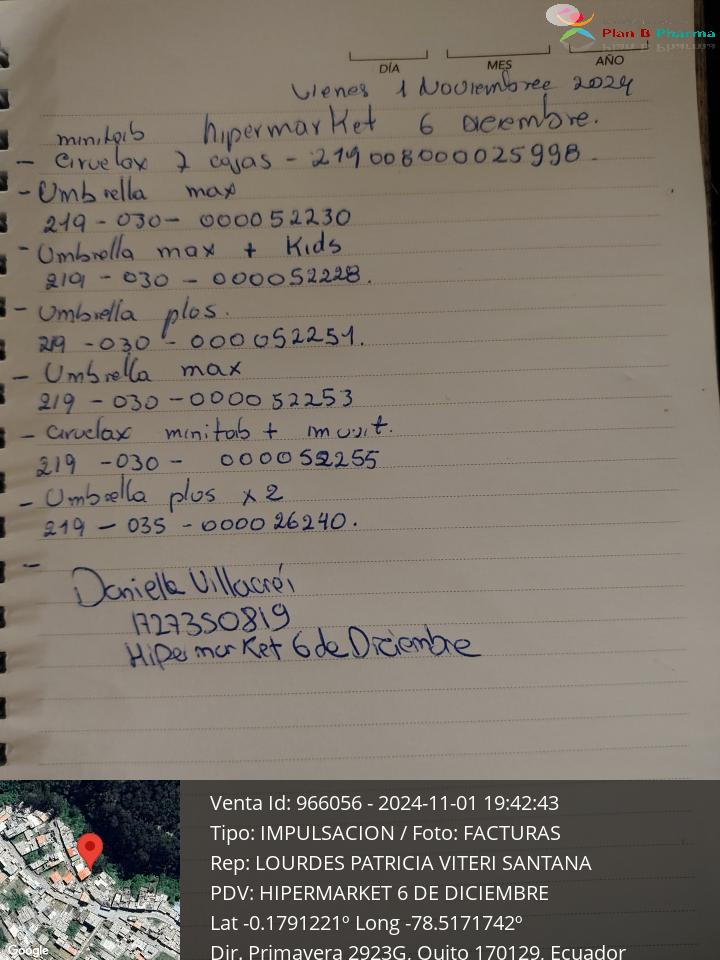 Plan B Pharma
DÍA MES AÑO
Vienes 1 Noviembree 2024
minitab hipermarket 6 Diciembre.
- Ciruelax 2 cajas - 219008000025998.
- Umbrella max
219 - 030 - 000052230
- Umbrella max + Kids
219 - 030 - 000052228.
- Umbrella plos.
219 - 030 - 000052251.
- Umbrella max
219 - 030 - 000052253
- Ciruelax minitab +
219 - 030 - 000052255
- Umbrella plus x 2
219 - 035 - 000026240.
-
Daniella Villacréi
1727350819
Hipermarket 6 de Diciembre
Venta Id: 966056 - 2024-11-01 19:42:43
Tipo: IMPULSACION / Foto: FACTURAS
Rep: LOURDES PATRICIA VITERI SANTANA
PDV: HIPERMARKET 6 DE DICIEMBRE
Lat -0.1791221º Long -78.5171742º
Dir. Primavera 2923G, Quito 170129, Ecuador
Google